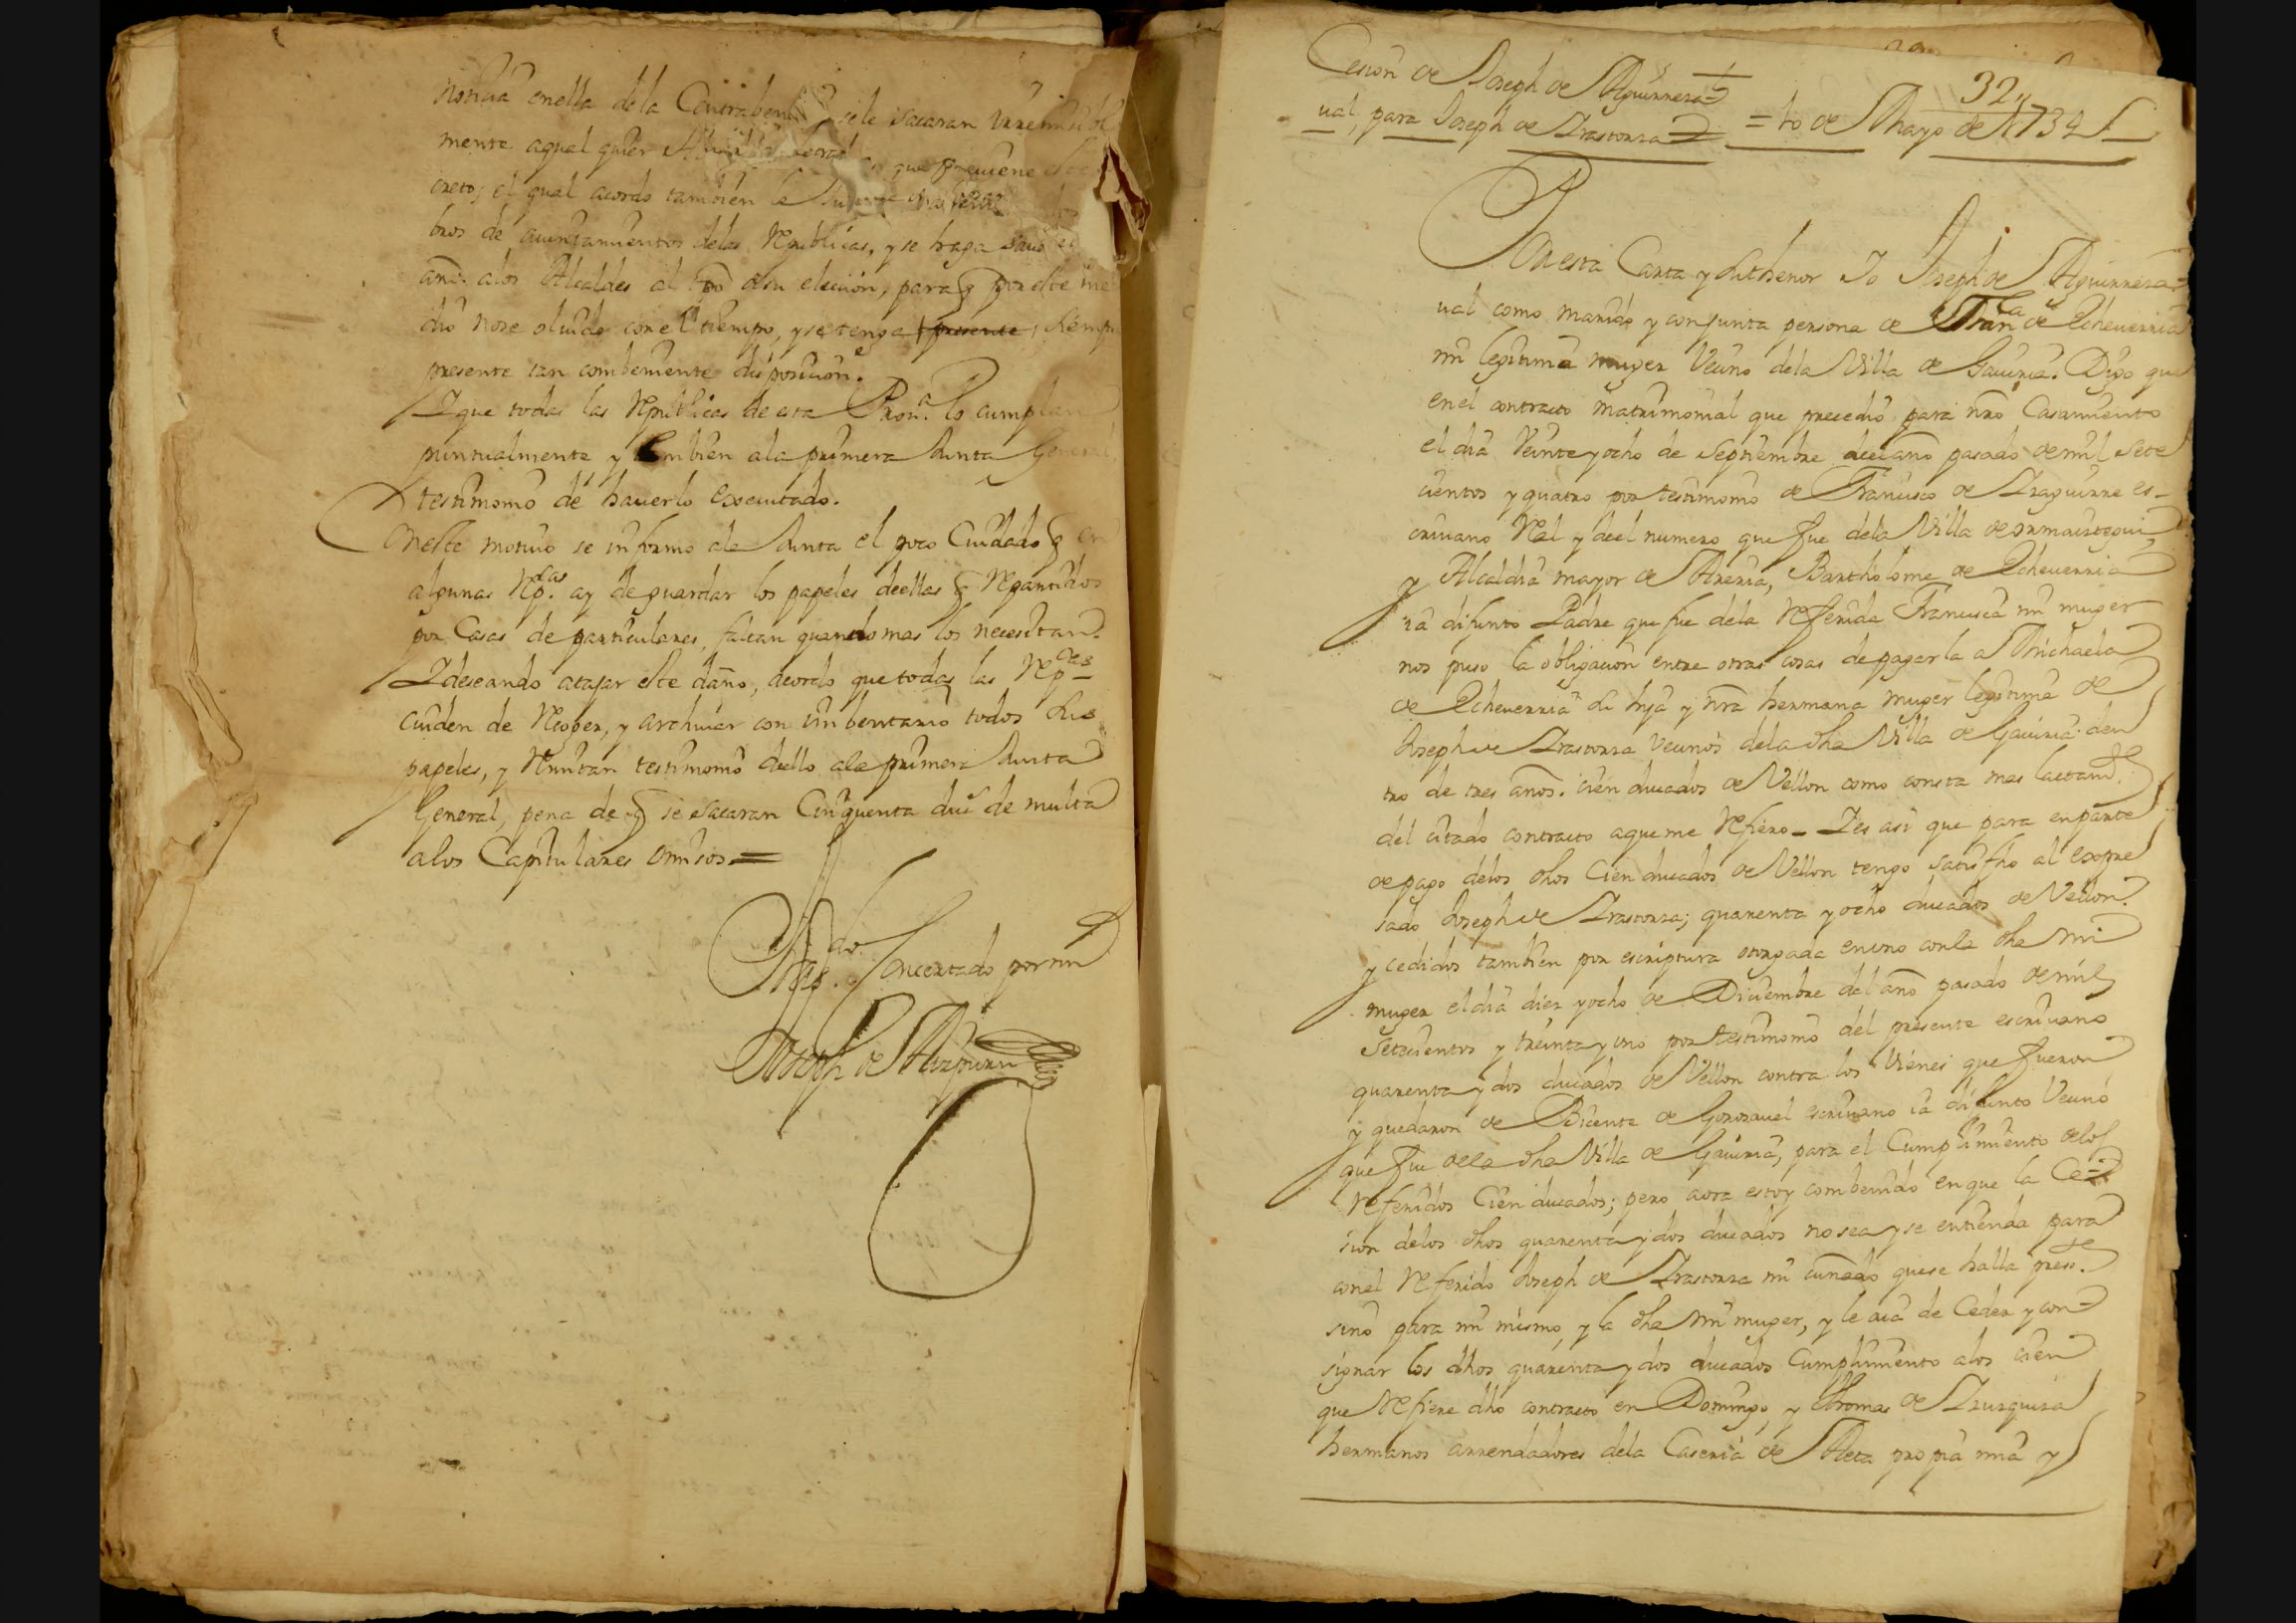 noticia enella dela Contrabenn q sele sacaran
mente aqual quier que preuiene este
creto; el qual acordo tambien se
bros de aiuntamientos delas Republicas, y se haga
an. alos Alcaldes al tpo desu eleccion, para q por este me
dio nose oluide conel tiempo, y se tenga presente, siemp
presente tan combeniente disposicion.
Y que todas las Republicas de esta Prou.a lo cumplan
puntualmente y embien ala primera Junta General,
testimonio de hauerlo executado.
Coneste motiuo se informo ala Junta el poco Cuidado q en
algunas Rp.cas ay de guardar los papeles deellas q Repartidos
por Casas de particulares, faltan quando mas los necesitan.
Y deseando atajar este daño, acordo que todas las Rp.cas
cuiden de Recoger, y archiuar con imbentario todos sus
papeles, y Remitan testimonio dello ala primera Junta
General, pena de q se sacaran Cinquenta dus de multa
alos Capitulares omisos =
Concertado por mi
Joseph de Aizpuru
32
Cesion de Joseph de Aguirreza=
ual, para Joseph de Irastorza = 10 de Mayo de 1734
Por esta Carta y su thenor Yo Joseph de Aguirreza=
ual como marido y conjunta persona de Fran.ca de Echeuerria
mi legitima muger Vecino dela Villa de Gauiria. Digo que
enel contracto matrimonial que precedio para nro Casamiento
el dia Veinte y ocho de Septiembre del año pasado de mil sete
cientos y quatro por testimonio de Francisco de Yraguirre es-
criuano Real y deel numero que fue dela Villa de ormaiztegui,
y Alcaldia mayor de Areria, Bartholome de Echeuerria
ia difunto Padre que fue dela Referida Francisca mi muger
nos puso la obligacion entre otras cosas de pagarla a Michaela
de Echeuerria su hija y nra hermana muger legitima de
Joseph de Irastorza vecinos dela dha Villa de Gauiria: den
tro de tres años. cien ducados de Vellon como consta mas lactamte.
del citado contracto aque me Refiero - Y es asi que para enparte
de pago delos dhos Cien ducados de Vellon tengo satisfho al expre
sado Joseph de Irastorza; quarenta y ocho ducados de Vellon.
y cedidos tambien por escriptura otorgada enuno conla dha mi
muger el dia diez y ocho de Diciembre del año pasado de mil
Setecientos y treinta y uno por testimonio del presente escriuano
quarenta y dos ducados de Vellon contra los Vienes que fueron
y quedaron de Bicente de Gorosauel escriuano ia difunto Vecino
que fue dela dha Villa de Gauiria, para el Cumplimiento delos
Referidos Cien ducados; pero aora estoy combenido en que la Ce=
sion delos dhos quarenta y dos ducados no sea y se entienda para
conel Referido Joseph de Irastorza mi cuñado quese halla preste.
sino para mi mismo, y la dha mi muger, y le aia de Ceder y con=
signar los dhos quarenta y dos ducados Cumplimiento alos cien
que Refiere dho contracto en Domingo, y Thomas de Yzurquiza
hermanos arrendadores dela Caseria de Aleta propia mia y